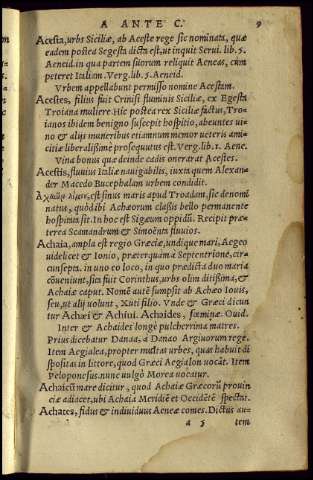 A ANTE C. 9
Acesta, urbs Siciliæ, ab Aceste rege sic nominata, quæ
eadem postea Segesta dicta est, ut inquit Serui. lib. 5.
Aeneid. in qua partem suorum reliquit Aeneas, cùm
peteret Italiam. Verg. lib. 5. Aeneid.
Vrbem appellabunt permisso nomine Acestam.
Acestes, filius fuit Crinisi fluminis Siciliæ, ex Egesta
Troiana muliere. Hic postea rex Siciliæ factus, Tro-
ianos ibidem benigno suscepit hospitio, abeuntes ui-
no & alijs muneribus etiamnum memor ueteris ami-
citiæ liberalissimè prosequutus est. Verg. lib. 1. Aene.
Vina bonus quæ deinde cadis onerarat Acestes.
Acestis, fluuius Italiæ nauigabilis, iuxta quem Alexan-
der Macedo Bucephalam urbem condidit.
est sinus maris apud Troadem, sic denomi
natus, quòd ibi Achæorum classis bello permanente
hospitata sit. In hoc est Sigæum oppidũ. Recipit præ-
terea Scamandrum & Simoënta fluuios.
Achaia, ampla est regio Græciæ, undique mari, Aegeo
uidelicet & Ionio, præterquàm à Septentrione, cir-
cunsepta. in uno eo loco, in quo prædicta duo maria
cõueniunt, sita fuit Corinthus, urbs olim ditissima, &
Achaiæ caput. Nomẽ autẽ sumpsit ab Achæo Iouis,
seu, ut alij uolunt, Xuti filio. Vnde & Græci dicun
tur Achæi & Achiui. Achaides, fœminæ. Ouid.
Inter & Achaides longè pulcherrima matres.
Prius dicebatur Danaa, à Danao Argiuorum rege.
Item Aegialea, propter multas urbes, quas habuit di
spositas in littore, quod Græci Aegialon uocãt. Item
Peloponesus. nunc uulgò Morea uocatur.
Achaicũ mare dicitur, quod Achaiæ Græcorũ prouin
ciæ adiacet, ubi Achaia Meridiẽ et Occidẽtẽ spectat.
Achates, fidus & indiuiduus Aeneæ comes. Dictus au-
a 5 tem